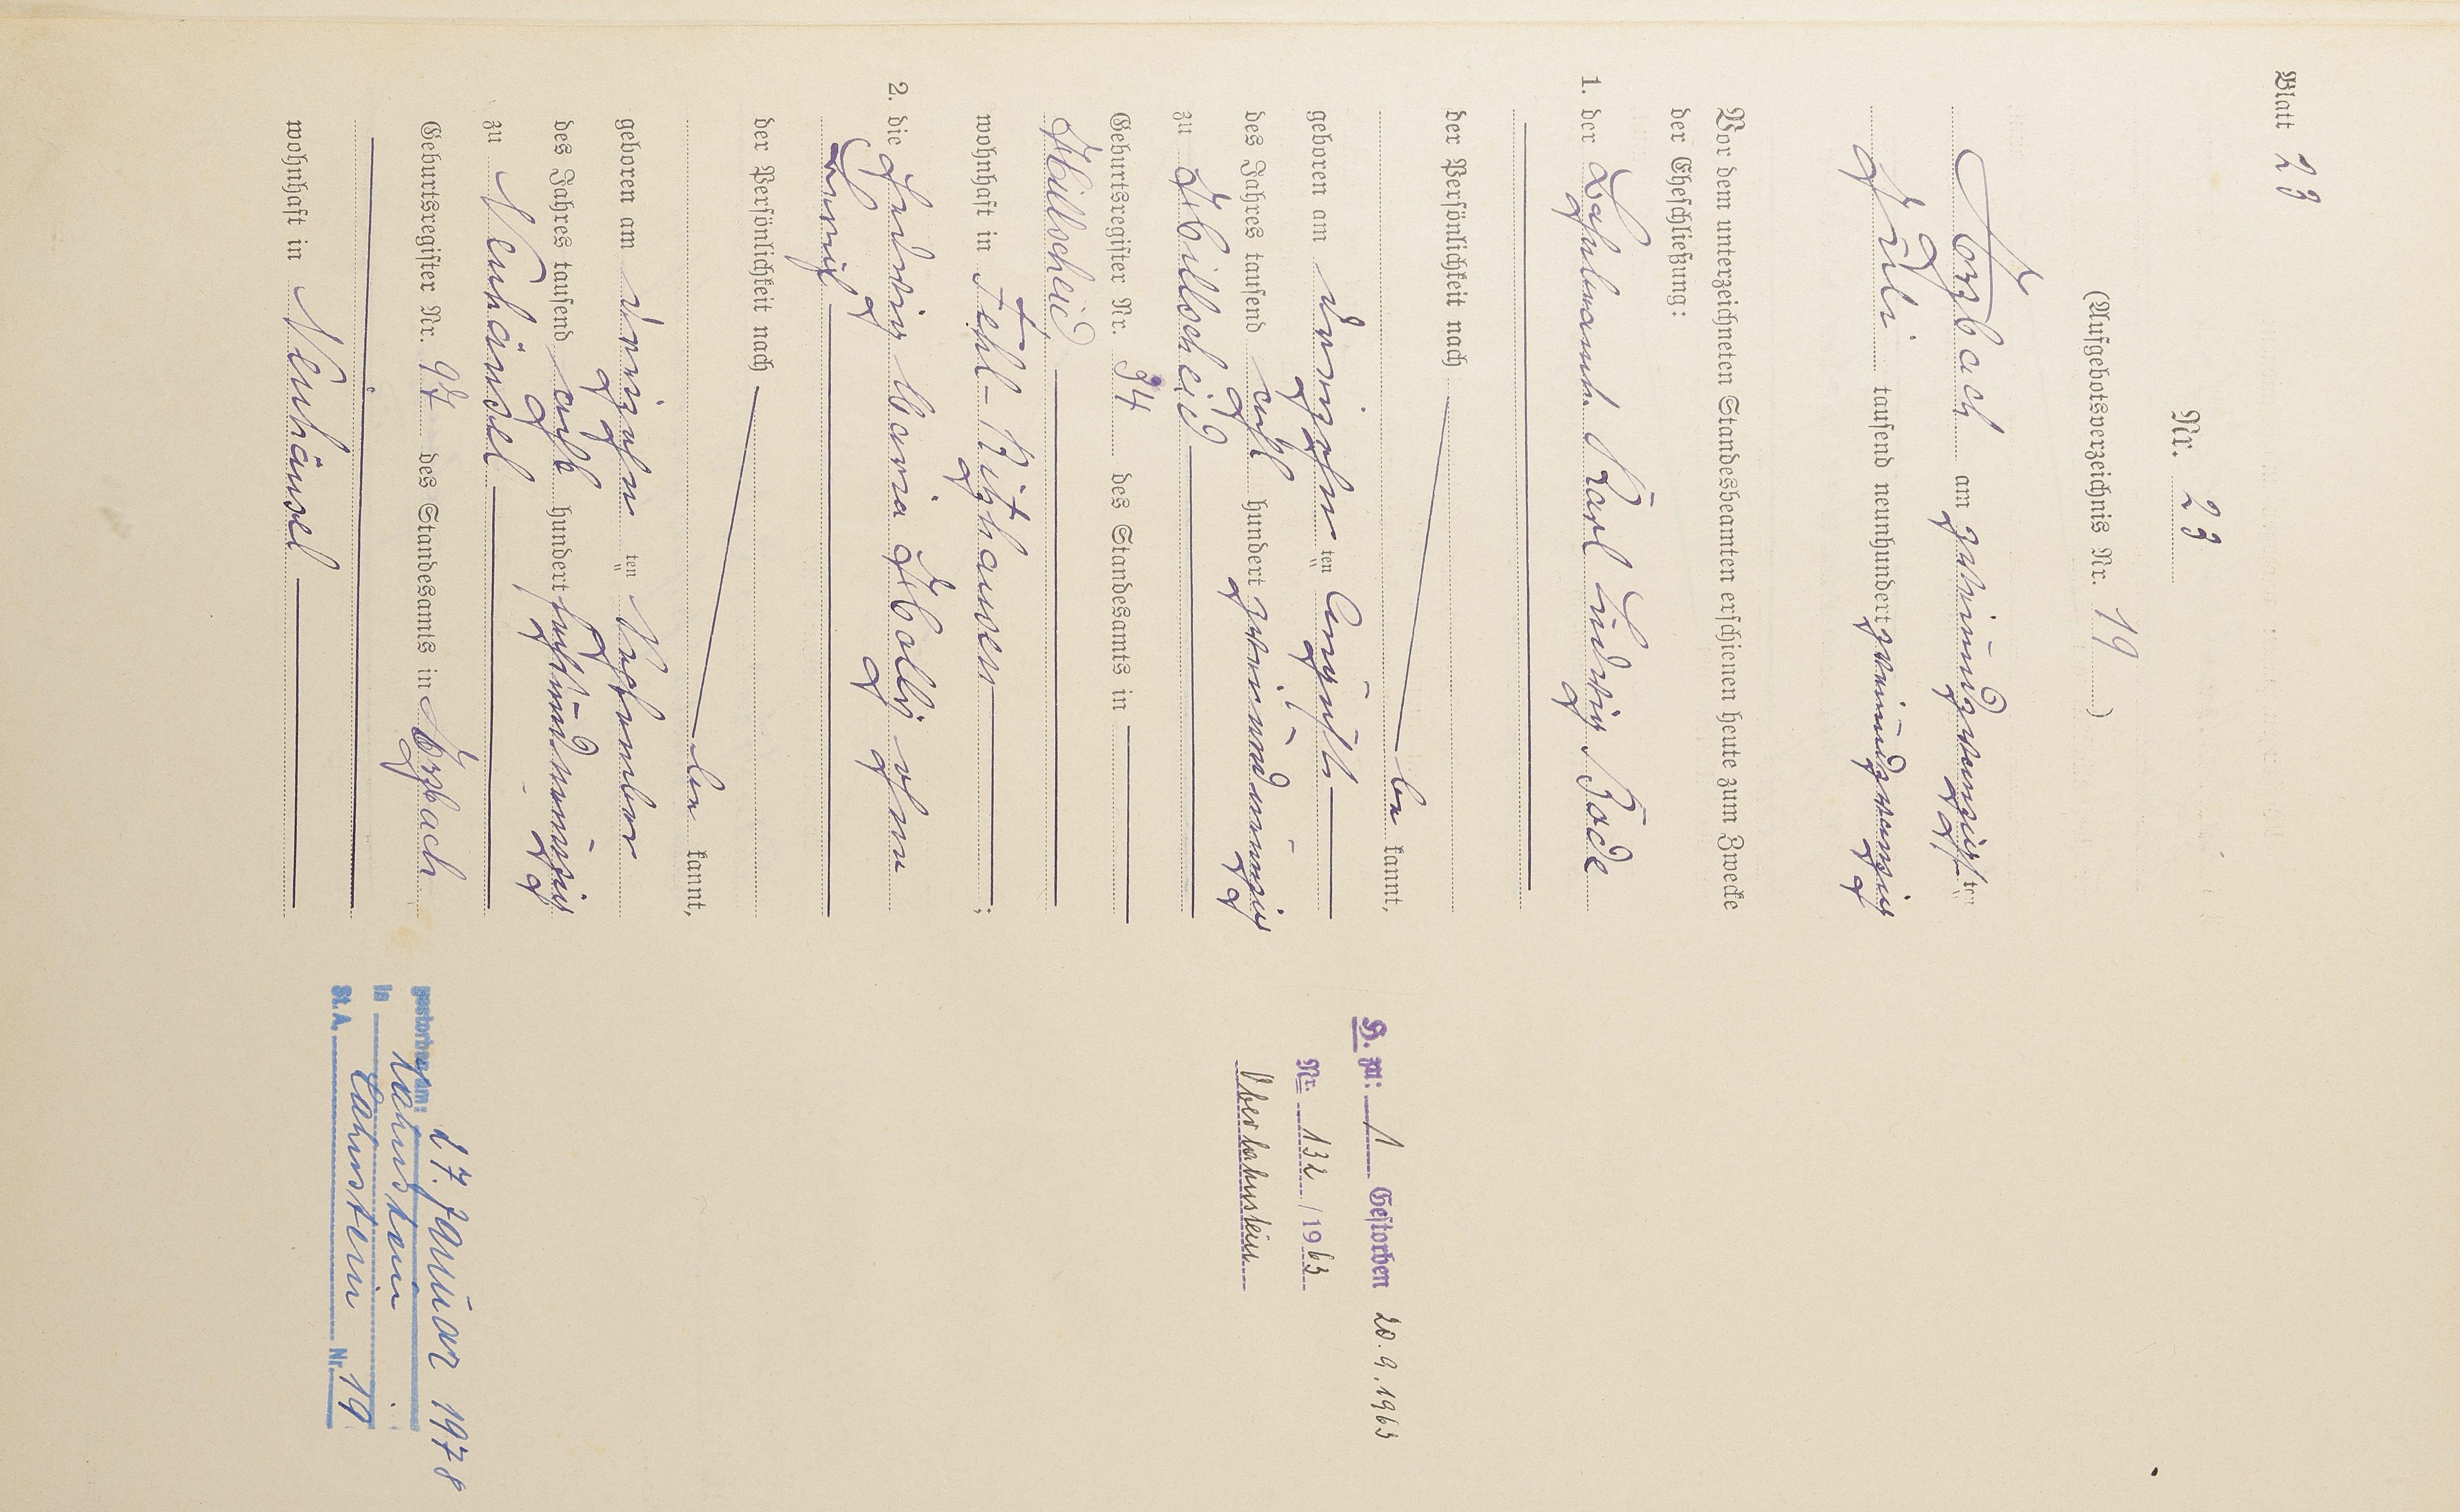 Blatt 23
Nr. 23
(Aufgebotsverzeichnis Nr. 19)
Arzbach am zweiundzwanzigsten
Juli tausend neunhundert zweiundzwanzig
Vor dem unterzeichneten Standesbeamten erschienen heute zum Zwecke
der Eheschließung:
1. der Bahnbeamte Karl Ludwig Bode
der Persönlichkeit nach
be kannt,
geboren am ten August
des Jahres tausend acht hundert zweiundneunzig
zu Hillscheid
Geburtsregister Nr. 94 des Standesamts in
Hillscheid
wohnhaft in Fehl-Ritzhausen ;
2. die Hedwig Maria ohne
der Persönlichkeit nach
be kannt,
geboren am vierzehnten November
des Jahres tausend acht hundert sechsundneunzig
zu Neuhäusel
Geburtsregister Nr. 97 des Standesamts in Arzbach
wohnhaft in Neuhäusel
H. zu: 1 Gestorben 20.9.1963
Nr. 132 / 1963
Oberlahnstein
gestorben am: 17. Januar 1978
in Lahnstein
St.A. Lahnstein Nr. 19